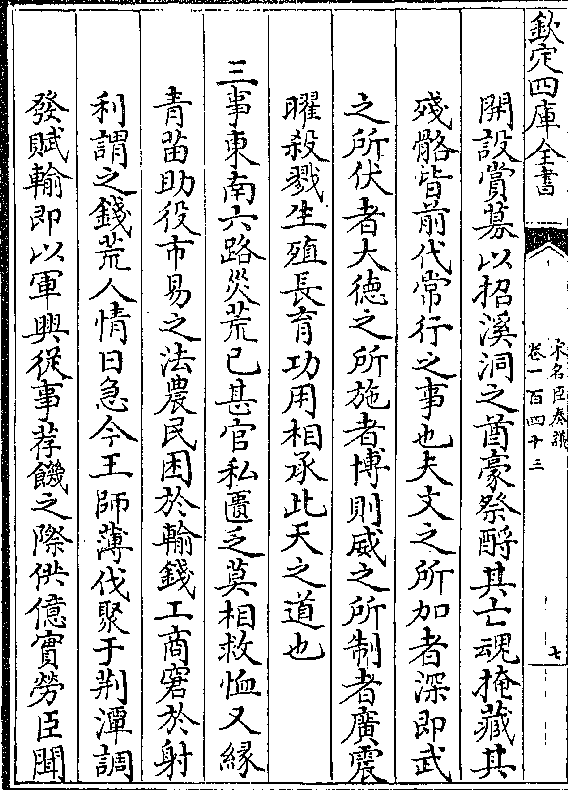 欽定四庫全書
宋名臣奏議
卷一百四十三
七
開設賞募以招溪洞之酋豪祭酹其亡魂掩藏其
殘骼皆前代常行之事也夫文之所加者深即武
之所伏者大德之所施者博則威之所制者廣震
曜殺戮生殖長育功用相承此天之道也
三事東南六路災荒已甚官私匱乏莫相救恤又緣
青苗助役市易之法農民困於輸錢工商窘於射
利謂之錢荒人情日急今王師薄伐聚于荆潭調
發賦輸即以軍興從事荐饑之際供億實勞臣聞